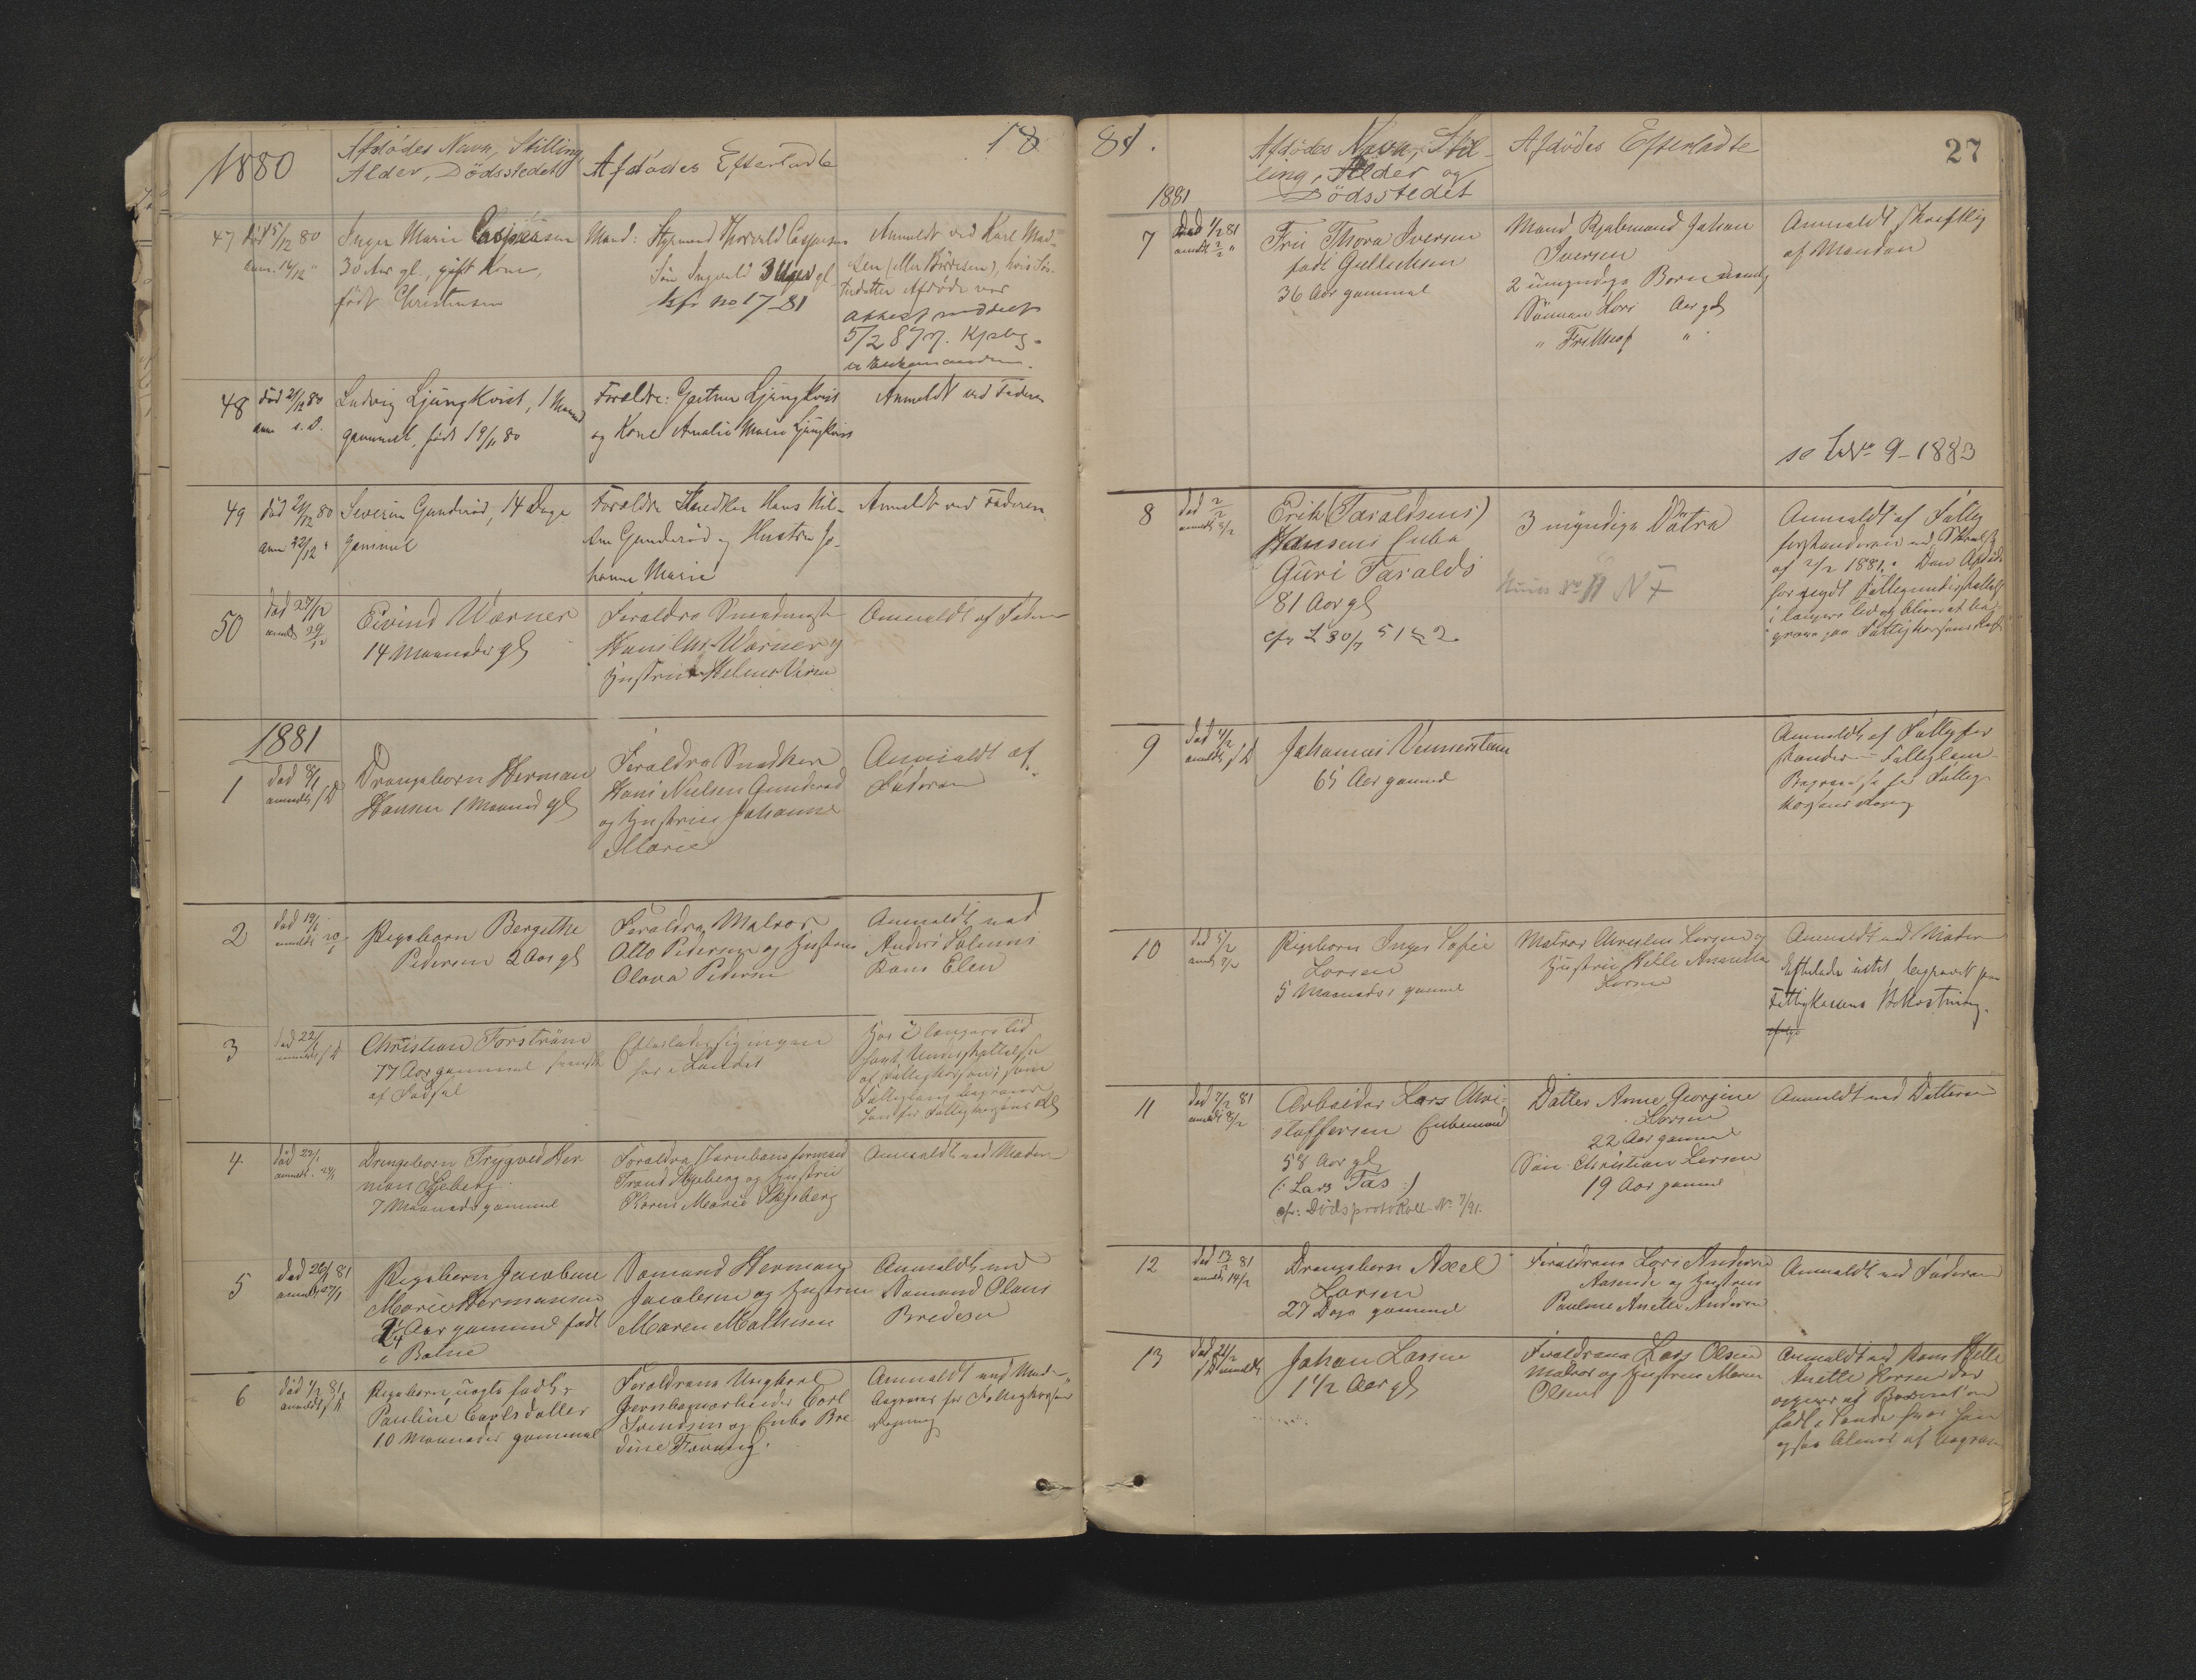 1880
Afdødes Navn, Stilling
Alder, Dødsstedet
Afdødes Efterladte
18
47
død 5/12 80
anm. 14/12 "
Inger Marie Caspersen
30 Aar gl., gift Kone,
født Christensen
Mand: Styrmand Thorvald Caspersen
Søn Ingvald 3 Uger gl
cfr no 17-81
Anmeldt ved Karl Mad-
sen
datter Afdøde var
Attest meddelt
5/2 87
48
død 21/12 80
anm s. D.
Ludvig Ljungkvist, 1 Maaned
gammel, født 19/11 80
Forældre: Gartner Ljungkvist
og Kone Amalie Marie Ljungkvist
Anmeldt ved Faderen
49
død 21/12 80
anm 22/12 "
Severin Gunderød, 14 Dage
gammel
Forældre Snedker Hans Niel-
sen Gunderød og Hustru Jo-
hanne Marie
Anmeldt ved Faderen.
50
død 27/12
anmeldt 29/12
Eivind Werner
14 Maaneder gl
Forældre Smedmester
Hans Chr. Werner og
Hustru
Anmeldt af Faderen
1881
1
død 8/1
anmeldt s D
Drengebarn Herman
Hansen 1 Maaned gl
Forældre Snedker
Hans Nielsen Gunderød
og Hustru Johanne
Marie
Anmeldt af
Faderen
2
død 19/1
anmeldt 20/1
Pigebarn Bergithe
Pedersen 2 Aar gl
Forældre Matros
Otto Pedersen og Hustru
Olava Pedersen
Anmeldt ved
Anders
Kone Elen
3
død 22/1
anmeldt s D
Christian Forström
77 Aar gammel svensk
af Fødsel
Efterlader sig ingen
her i Landet
Har i længere tid
havt Understøttelse
af Fattigkassen, som
Fattiglem begraves
4
død 22/1
anmeldt 24/1
Drengebarn Trygved Her
man Skjeberg
7 Maaneder gammel
Forældre Jernbaneformand
Trond Skjeberg og Hustru
Karen Marie Skjeberg
Anmeldt ved Moderen
5
død 26/1 81
anmeldt 27/1
Pigebarn Jacobine
Marie Hermansen
Aar gammel født
i Botne
Sømand Herman
Jacobsen og Hustru
Maren Mathisen
Anmeldt ved
Sømand Olaus
Bredesen
6
død 1/2 81
anmeldt s D
Pigebarn uægte født
Pauline Carlsdatter
10 Maaneder gammel
Forældrene Ungkarl
Jernbanearbeider Carl
Svendsen og Enke Bre
dine
Anmeldt ved
begraves for Fattigkassens
Regning
81.
1881
Afdødes Navn, Stil-
ling, Alder og
Dødsstedet
Afdødes Efterladte
27
7
død 1/2 81
anmeldt 2/2 "
Fru Thora Iversen
født Gullichsen
36 Aar gammel
Mand Johan
Iversen
2 umyndige Børn nemlig
Sønnen Lars Aar gl
" Frithjof "
Anmeldt skriftlig
af Manden
se L No 9-1883
8
død 2/2
anmeldt 5/2
Erik (Taraldsens)
Hansens Enke
Guri Taralds
81 Aar gl
3 myndige Døtre
Anmeldt af Fattig
forstanderen ved Skrivelse
af 2/2 1881. Den Afdøde
har nydt Fattigunderstøttelse
i længere tid og bliver at be-
grave paa Fattigkassens Regning
9
død 4/2
anmeldt s D
Johannes Vennerstrøm
65 Aar gammel
Anmeldt af Fattigfor
stander - Fattiglem
Begravelse for Fattig-
kassens Regning
10
død 5/2
Pigebarn Inger Sofie
Larsen
5 Maaneder gammel
Matros Christen Larsen og
Hustru Helle Annette
Larsen
Anmeldt ved Moderen
Efterlader intet begravet paa
Fattigkassens Bekostning.
11
død 7/2 81
anmeldt 8/2
Arbeider Lars Chri-
stoffersen Enkemand
58 Aar gl
(: Lars Tas :)
cfr: Dødsprotokoll No 7/91.
Datter Anne Georgine
Larsen
22 Aar gammel
Søn Christian Larsen
19 Aar gammel
Anmeldt ved Datteren
12
død 13/2 81
anmeldt 14/2
Drengebarn Axel
Larsen
27 Dage gammel
Forældrene Lars Andersen
Aasende og Hustru
Pauline Anette Andersen
Anmeldt ved Faderen
13
død 21/2
s D anmeldt
Johan Larsen
1 1/2 Aar gl
Forældrene Lars Olsen
Matros og Hustru Maren
Olsen
Anmeldt ved Kone Helle
Anette Larsen der
opgiver at Barnet er
født i Sande hvor han
ogsaa bliver at begrave